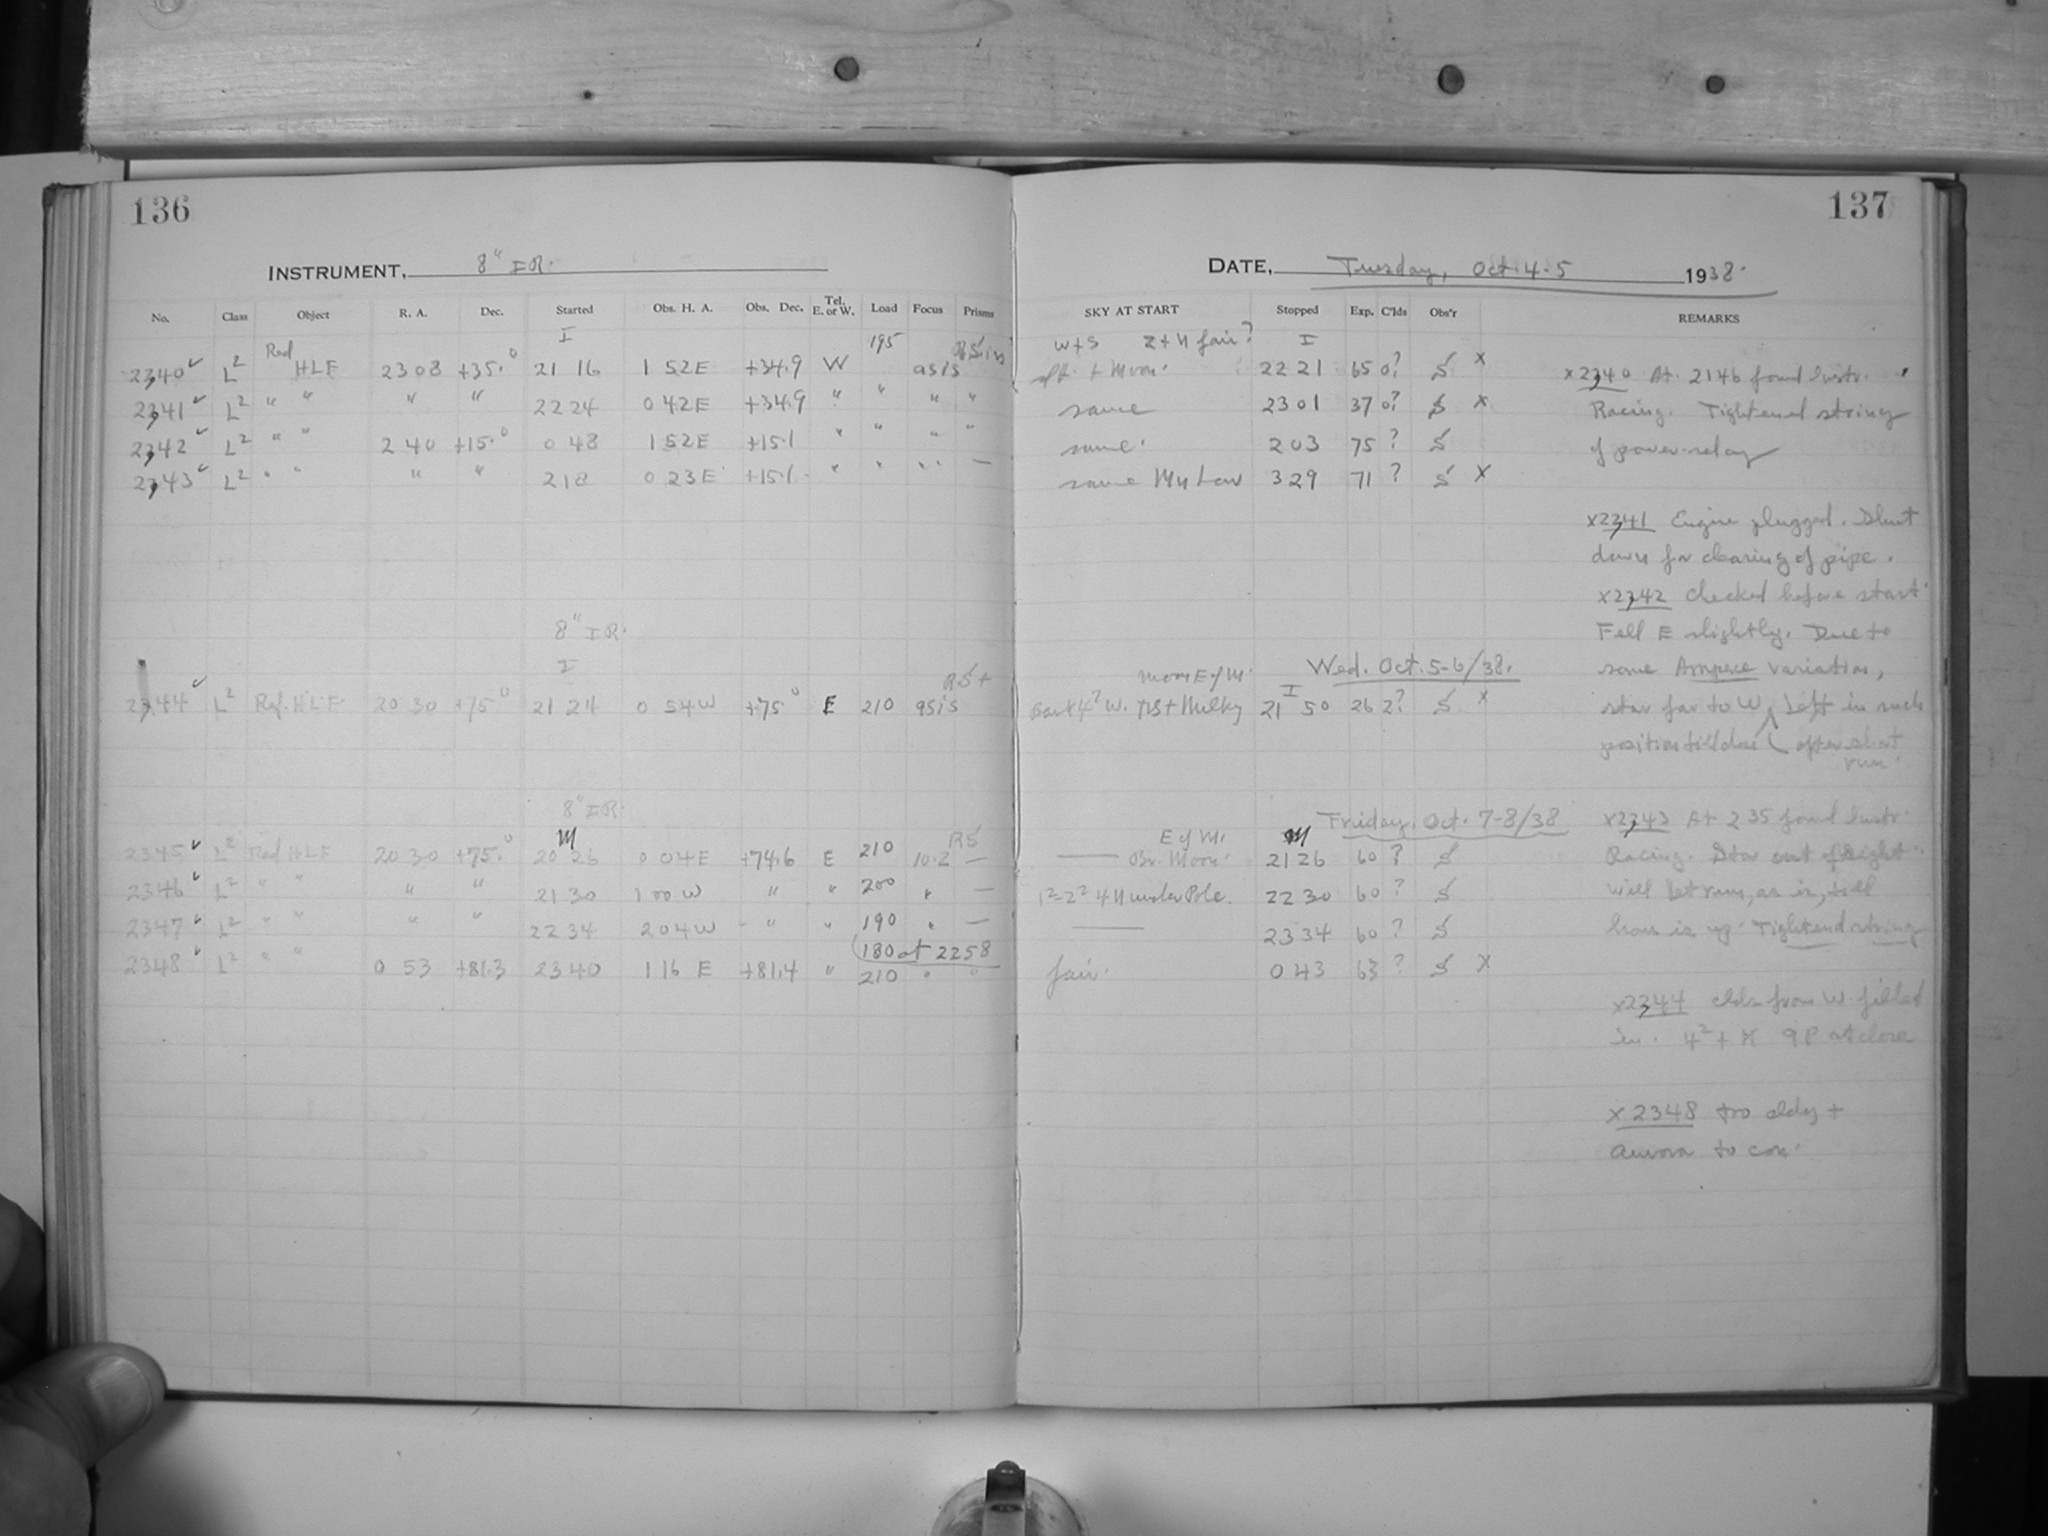 136
INSTRUMENT, 8" IR.
No. Class Object R. A. Dec. Started Obs. H. A. Obs. Dec. Tel. E. or W. Load Focus Prisms
I 195
2340 ✓ L2 Red HLF 23 08 +35.° 21 16 1 52E +34.9 W as is
2341 ✓ L2 " " " " 22 24 0 42E +34.9 " " " "
2342 ✓ L2 " " 2 40 +15.° 0 48 1 52E +15.1 " " " "
2343 ✓ L2 " " " " 2 18 0 23E +15.1 " " " —
8" IR.
I
2344 ✓ L2 Red HLF 20 30 +75° 21 24 0 54W +75° E 210 as is
8" IR.
M R5
2345 ✓ L2 Red HLF 20 30 +75.° 20 26 0 04E +74.6 E 210 10.2 —
2346 ✓ L2 " " " " 21 30 1 00 W " " 200 " —
2347 ✓ L2 " " " " 22 34 2 04W " " 190 " —
(180 at 2258
2348 ✓ L2 " " 0 53 +81.3 23 40 1 16 E +81.4 " 210 " "
137
DATE, Tuesday, Oct. 4-5 1938.
SKY AT START Stopped Exp. C'lds Obs'r REMARKS
W+S Z+N fair? I
+ Moon. 22 21 65 0? S x
same 23 01 37 0? S x
same. 2 03 75 ? S
same Mn Low 3 29 71 ? S x
Moon E of M. Wed. Oct. 5-6/38.
I
W. + Milky 21 50 26 2? S x
Friday, Oct. 7-8/38
E of M. M
— Br. Moon. 21 26 60 ? S
under Pole. 22 30 60 ? S
— 23 34 60 ? S
fair. 0 43 63 ? S x
x2340 At 2146 found Instr.
Racing. Tightened string
of power-relay
x2341 Engine plugged. Shut
down for clearing of pipe.
x2342 Checked before start.
Fell E slightly. Due to
some variation,
star far to W, Left in such
position till close after short
run.
x2343 At 235 found Instr.
Racing. Star out of sight.
will let run, as is, till
hour is up. Tightened string
x2344 clds from W. filled
in. at close
x2348 too cldy +
aurora to con.